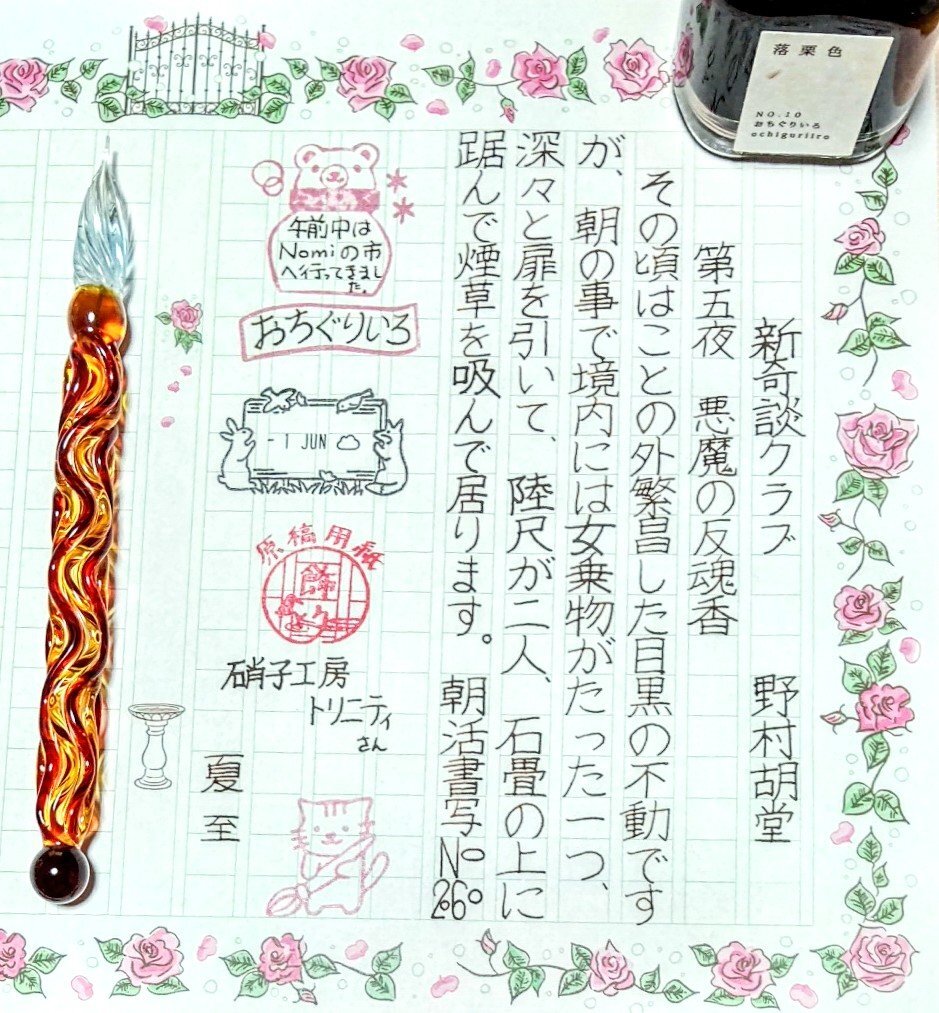 落栗色
NO.10
おちぐりいろ
ochiguriiro
新奇談クラブ 野村胡堂
第五夜 悪魔の反魂香
その頃はことの外繁昌した目黒の不動です
が、朝の事で境内には女乗物がたった一つ、
深々と扉を引いて、陸尺が二人、石畳の上に
踞んで煙草を吸んで居ります。朝活書写No260
午前中は
Nomiの市
へ行ってきまし
た。
おちぐりいろ
-1 JUN
原稿用紙
硝子工房
トリニティ
さん
夏至